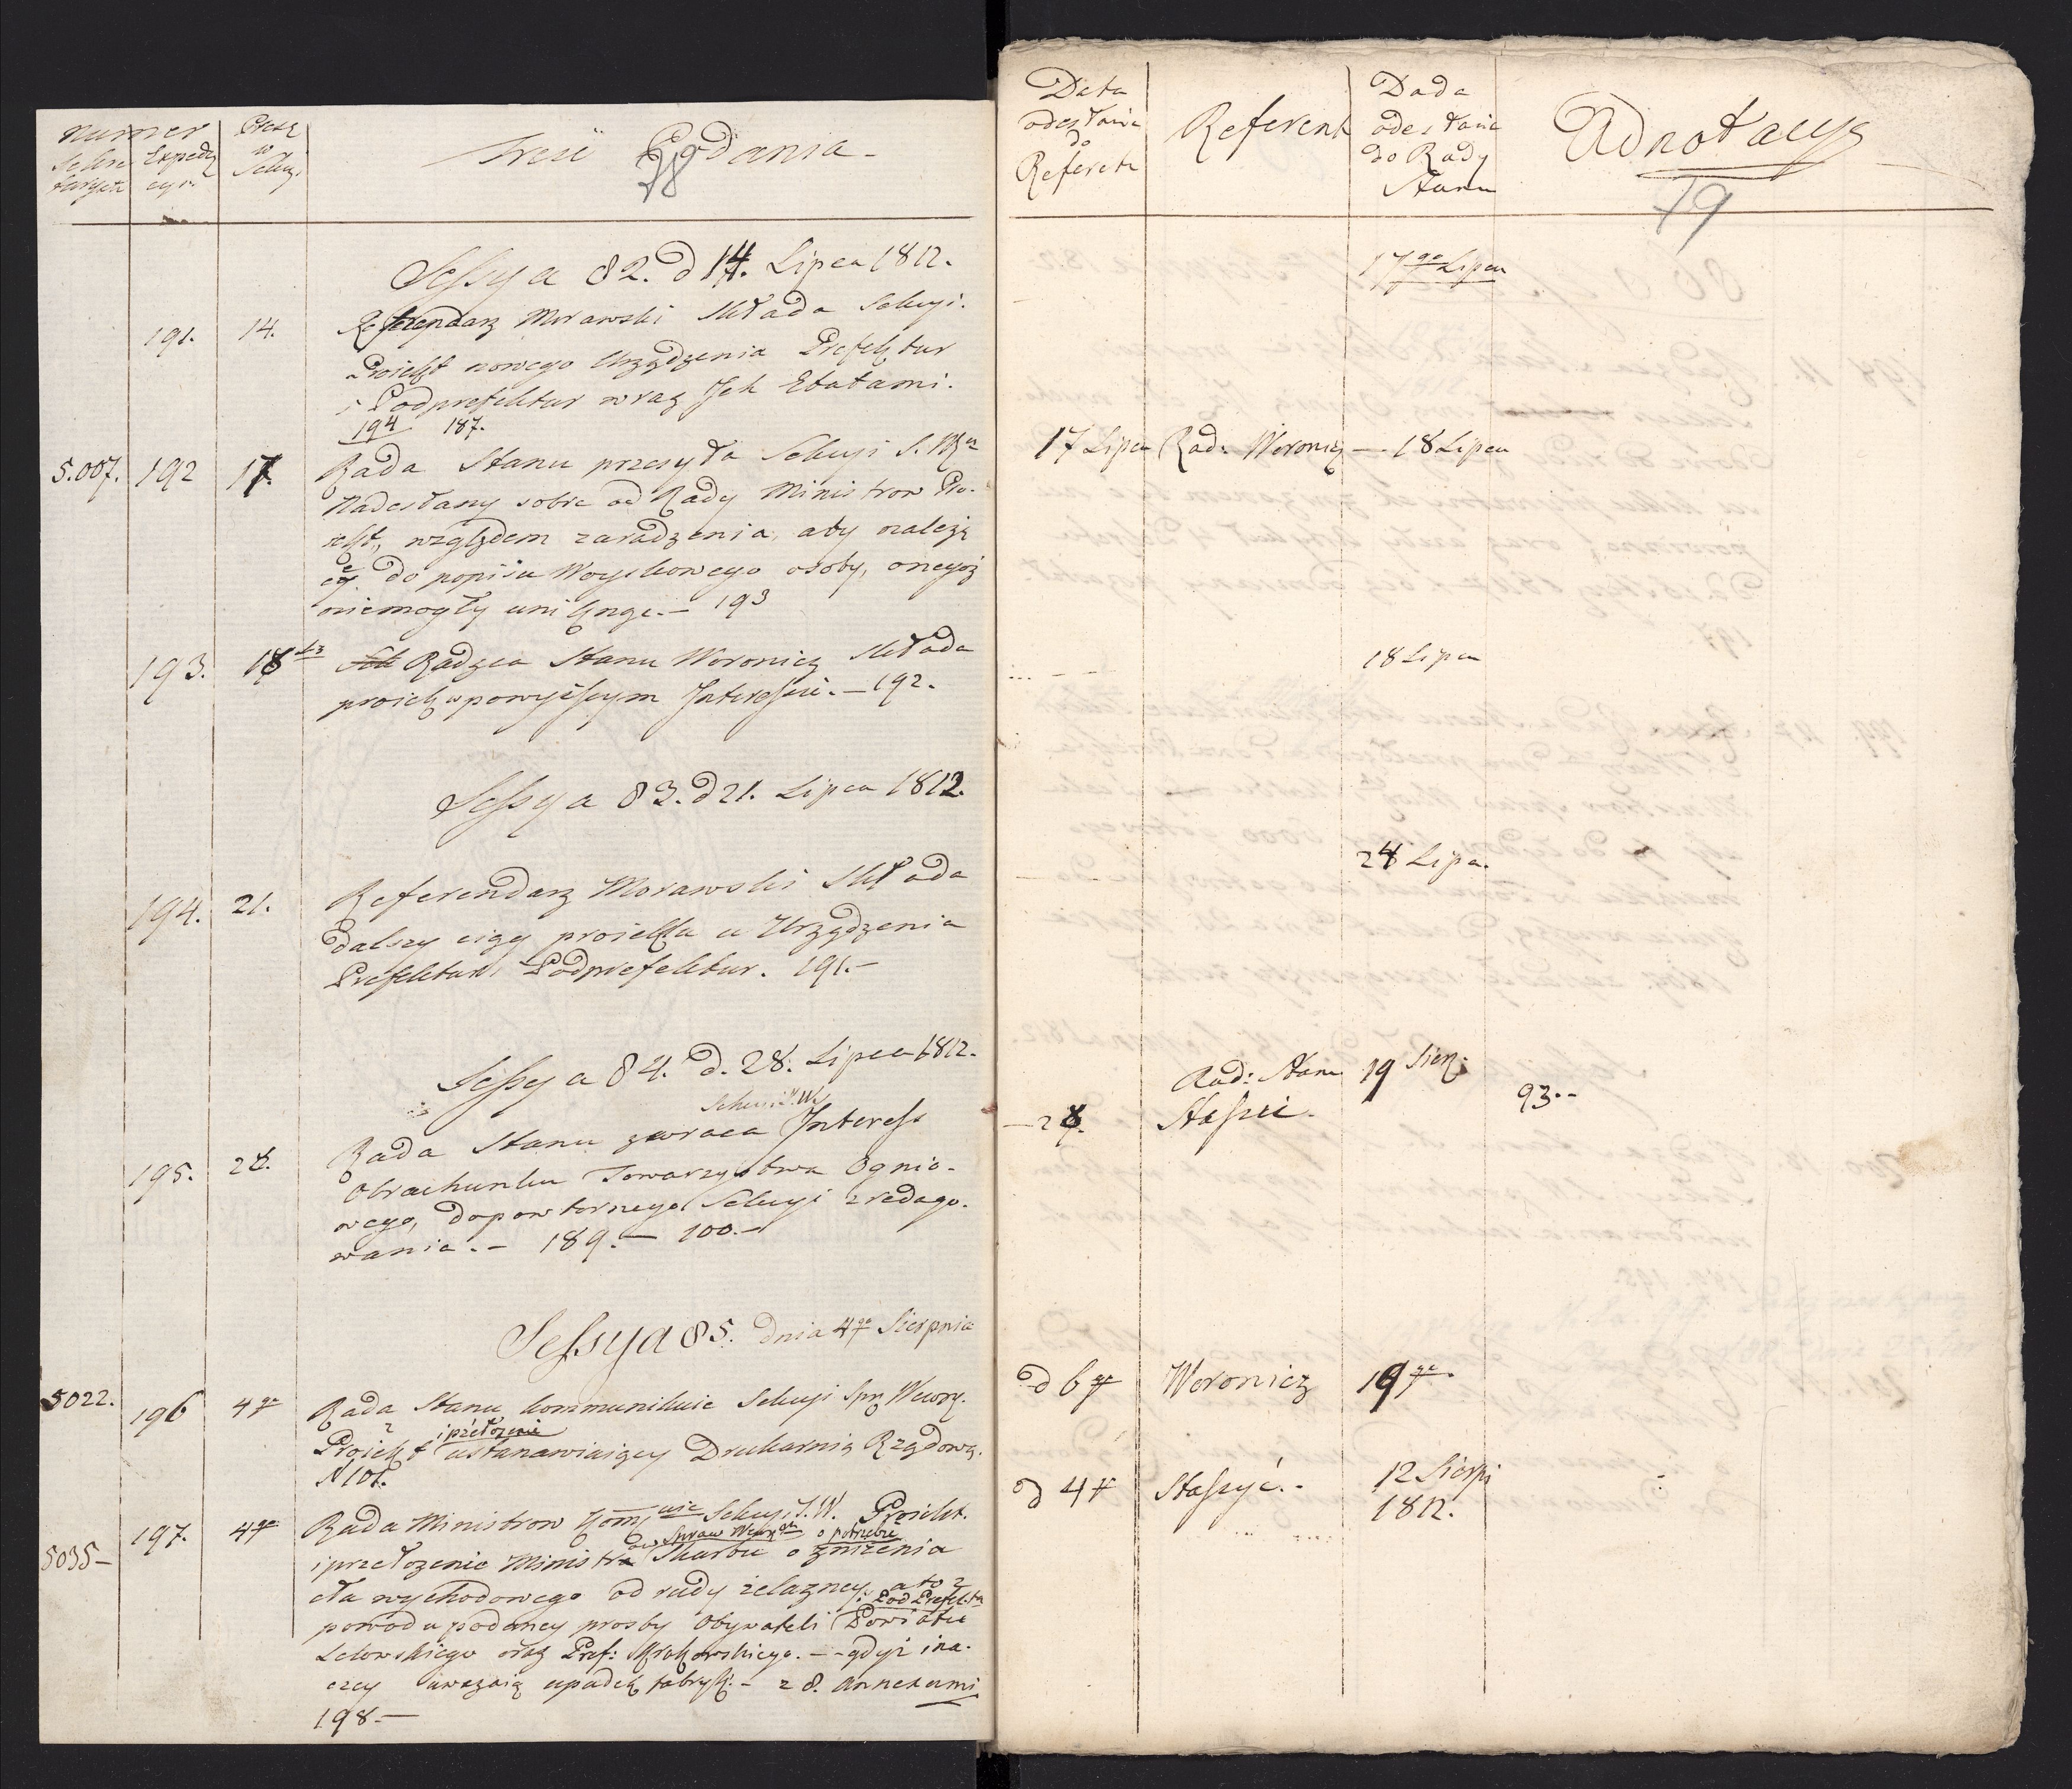 Numer
Sekre
taryatu
Expedy
cyi
Prez
w
Sekcyi
Treść Podania
Sessya 82. d 14. Lipca 1812.
191. 14. Referendarz Morawski składa Sekcyi.
Proiekt nowego Urządzenia Prefektur
i Podprefektur wraz Jch Etatami.
194 187.
5.007. 192 17. Rada Stanu przesyła Sekcyi S. W.
Nadesłany sobie od Rady Ministrow Pro-
iekt, względem zaradzenia, aby należą
ce do popisu Woyskowego osoby, onegoż
niemogły uniknąć. – 193
193. 18 Radzca Stanu Woronicz składa
proiekt w powyższym Interessie. – 192.
Sessya 83. d 21. Lipca 1812.
194. 21. Referendarz Morawski składa
dalszy ciąg proiektu u Urządzenia
Prefektur i Podprefektur. 191. –
Sessya 84. d. 28. Lipca 1812.
Sekcyi S. W.
195. 28. Rada Stanu zwraca Interess
Obrachunku Towarzystwa Ognio-
wego, do powtornego Sekcyi zredago-
wania. – 189. – 100. –
Sessya 85. dnia 4go Sierpnia
5022. 196 4go Rada Stanu kommunikuie Sekcyi Spr. Wewn.
i przełożenie
Proiekt ustanawiaiący Drukarnią Rządową.
N 101.
197. 4go Rada Ministrow Sekcyi S. W. Proiekt.
Spraw Wewn o potrzebie
5035 – i przełozenie Ministra Skarbu o zniżenia
cła wychodowego od rudy żelazney, a to z
i Pod Prefekta
powodu podaney prosby Obywateli Powiatu
Lelowskiego oraz Pref: Krakowskiego. – gdyż ina-
czey uważaią upadek fabryk. – z 8. annexami
198. –
Data
odesłania
do
Referenta
Referent
Dada
odesłania
do Rady
Stanu
Adnotacye
79
17go Lipca
17 Lipca Rad: Woronicz – 18 Lipca
18 Lipca
24 Lipca.
Rad: Stanu 19 Sierp:
– 28. Staszic. 93. –
d 6go Woronicz 19go.
d 4go Staszyc. – 12 Sierp
1812.